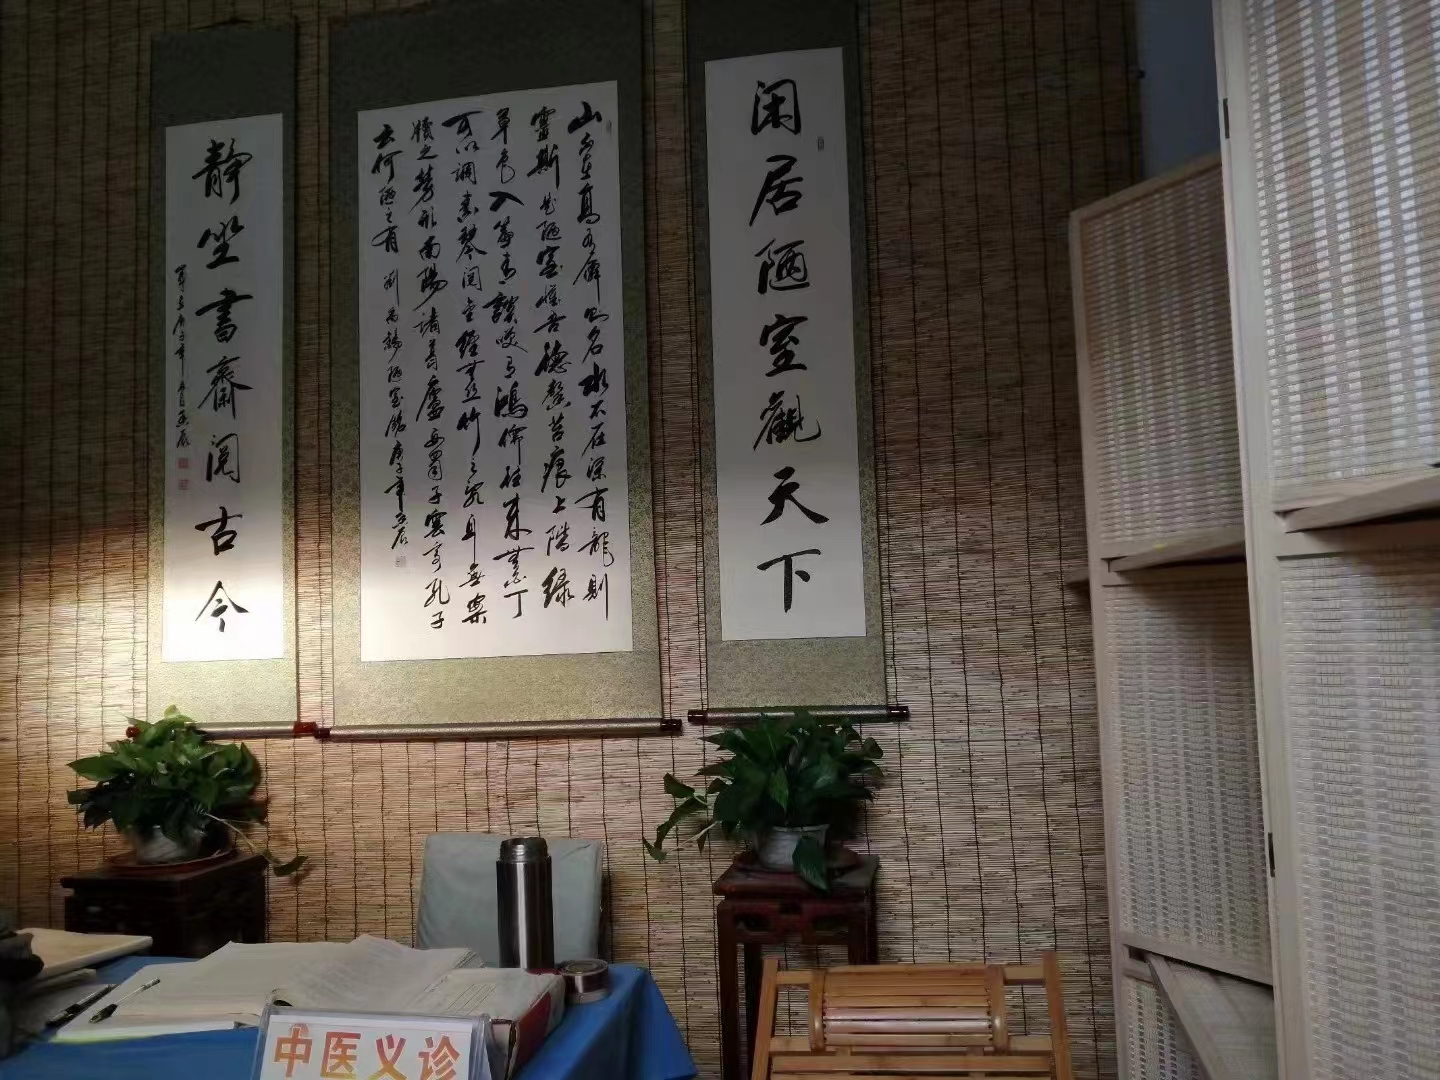 闲居陋室觀天下
山不在高有僊則名水不在深有龍則
靈斯是陋室惟吾德馨苔痕上階緑
草色入簾青談笑有鴻儒往來無白丁
可以調素琴閱金經無丝竹之亂耳無案
牘之勞形南陽諸葛廬西蜀子雲亭孔子
云何陋之有 劉禹錫陋室銘庚子年
靜坐書齋閱古今
庚子年
中医义诊